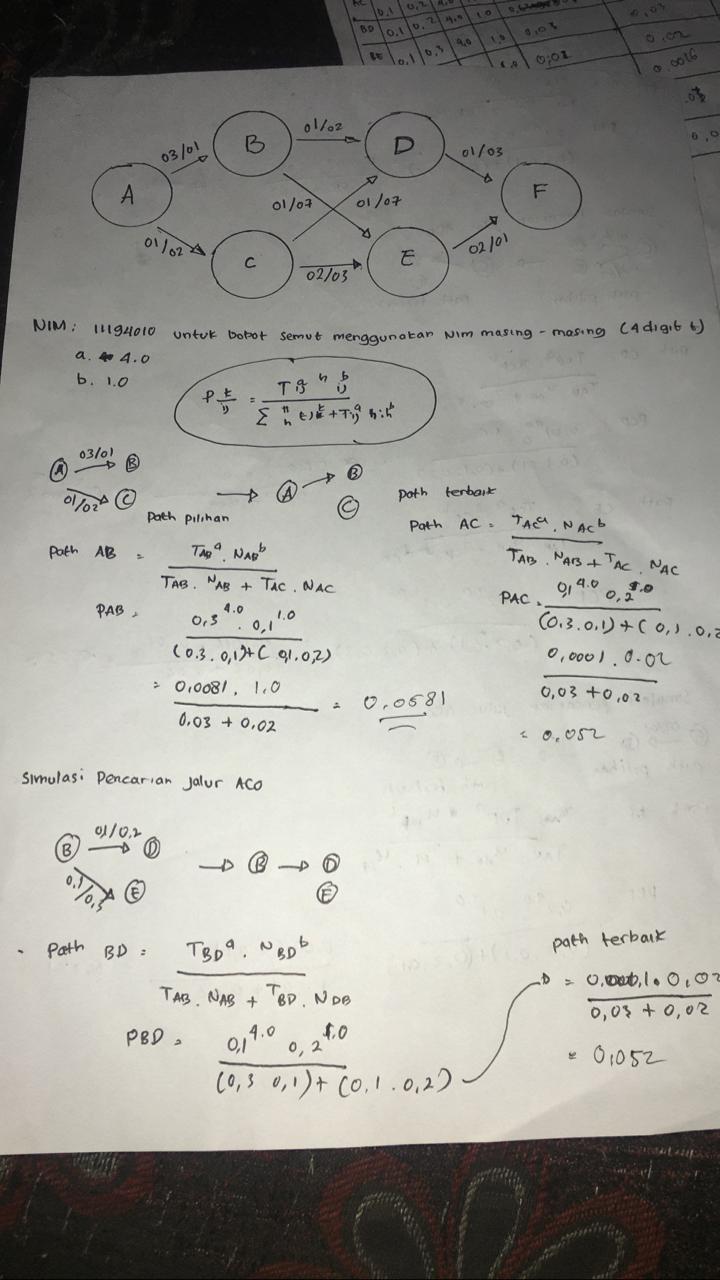 AC 0,1 0,2 4.0
BD 0,1 0,2 4.0 1.0
BE 0,1 0,3 4.0 1.0 0,03
0,02
0,03
0,02
0.0016
B
01/02
D
03/01
01/03
A
F
01/07
01/07
01/02
C
02/03
E
02/01
NIM: 11194010 untuk bobot semut menggunakan Nim masing-masing (4 digit t)
a. 4.0
b. 1.0
03/01
A B
01/02 C
A B
C
Path pilihan
path terbaik
Path AB = TAB^a . NAB^b
TAB . NAB + TAC . NAC
PAB = 0,3^4.0 . 0,1^1.0
(0.3. 0,1)+( 0,1.0,2)
= 0,0081. 1.0 = 0,0581
0.03 + 0.02
Path AC = TAC^a . NAC^b
TAB . NAB + TAC . NAC
PAC = 0,1^4.0 0,2^1.0
(0.3.0,1)+(0,1.0,2
0,0001. 0.02
0,03 + 0,02
= 0,052
Simulasi Pencarian jalur ACO
0,1/0,2
B D
0,1/0,3 E
B D
E
- Path BD = TBD^a . NBD^b
TAB . NAB + TBD . NDB
PBD = 0,1^4.0 0,2^1.0
(0,3 0,1)+(0,1.0,2)
path terbaik
0,02
0,03 + 0,02
= 0,052